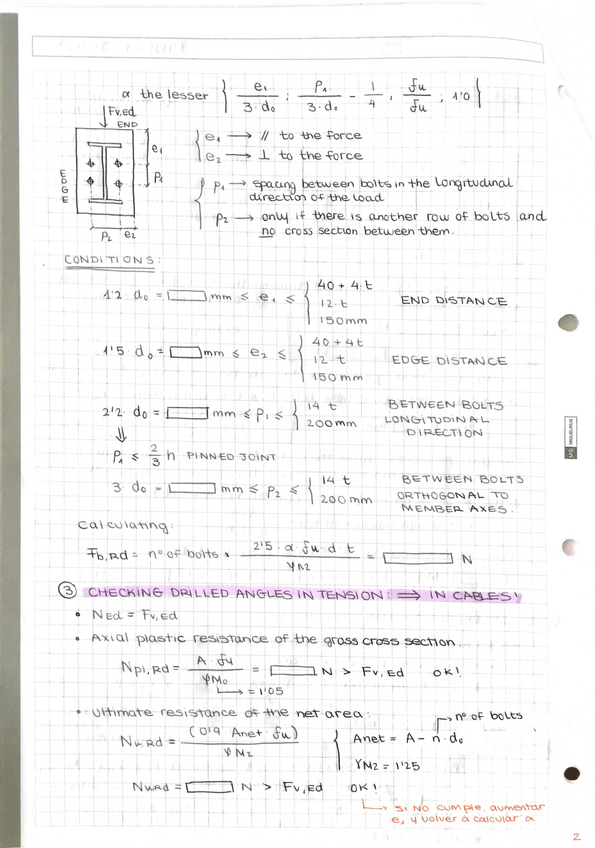 α the lesser { e₁ / 3·d₀ ; P₁ / 3·d₀ - 1/4 , fu / fu ; 1'0 }
Fv,Ed
END
EDGE
e₁
P₁
P₂ e₂
e₁ → // to the force
e₂ → ⊥ to the force
P₁ → spacing between bolts in the Longitudinal
direction of the load
P₂ → only if there is another row of bolts and
no cross section between them.
CONDITIONS:
1'2 d₀ = mm ≤ e₁ ≤ { 40 + 4·t
12·t
150mm
END DISTANCE
1'5·d₀ = mm ≤ e₂ ≤ { 40 + 4t
12·t
150 mm
EDGE DISTANCE
2'2·d₀ = mm ≤ P₁ ≤ { 14 t
200mm
BETWEEN BOLTS
LONGITUDINAL
DIRECTION
⇓
P₁ ≤ 2/3 h PINNED JOINT
3·d₀ = mm ≤ P₂ ≤ { 14·t
200mm
BETWEEN BOLTS
ORTHOGONAL TO
MEMBER AXES.
Calculating:
Fb,Rd = nº of bolts * 2'5·α·fu·d·t / γM2 = N
③ CHECKING DRILLED ANGLES IN TENSION: ⇒ IN CABLES!
• NEd = Fv,Ed
• Axial plastic resistance of the gross cross section.
Npl,Rd = A·fu / γM₀ = N > Fv,Ed OK!
→ = 1'05
• Ultimate resistance of the net area:
→ nº of bolts
Nu,Rd = (0'9 Anet·fu) / γM2
{ Anet = A - n·d₀
γM2 = 1'25
Nu,Rd = N > Fv,Ed OK!
→ SI NO CUMPLE, aumentar
e₁ y volver a calcular α
MIQUELRIUS
2